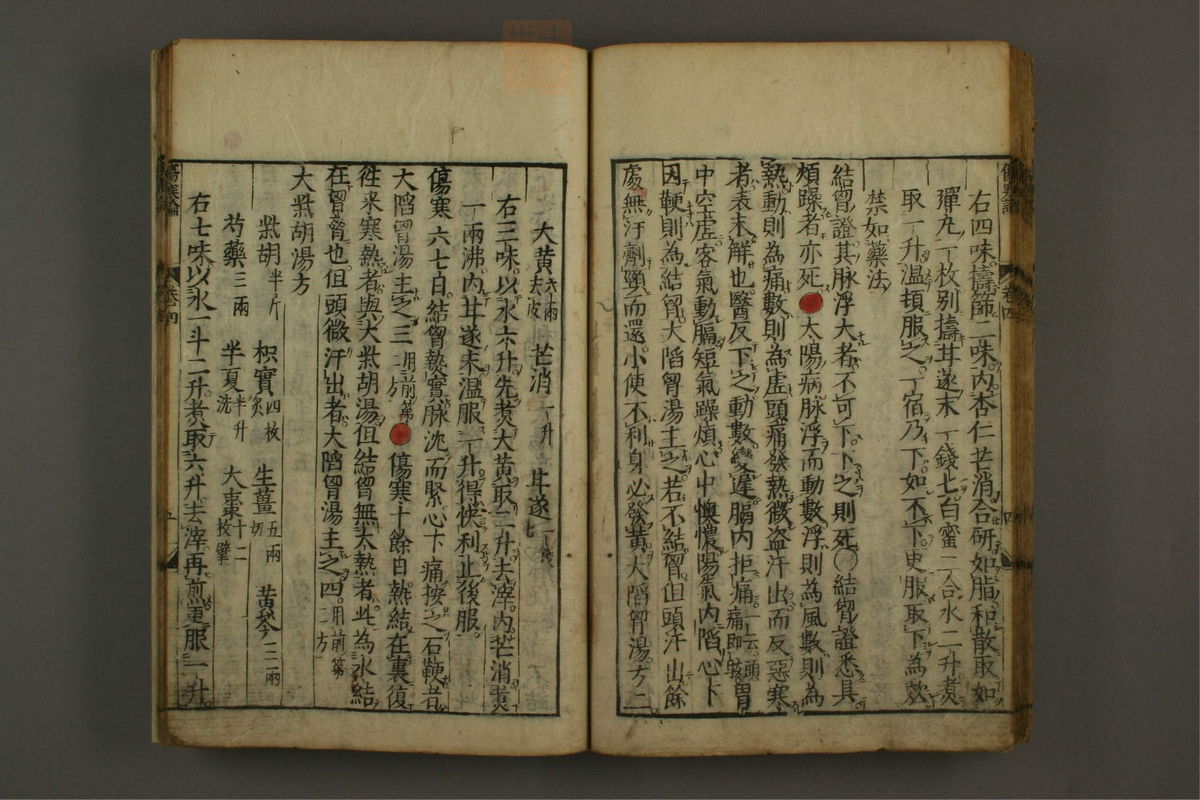 右四味擣篩二味内杏仁芒消合研如脂和散取如
彈丸一枚別擣甘遂末一錢匕白蜜二合水二升煑
取一升温頓服之一宿乃下如不下更服取下為效
禁如藥法
結胷證其脉浮大者不可下下之則死○結胷證悉具
煩躁者亦死 太陽病脉浮而動數浮則為風數則為
熱動則為痛數則為虚頭痛發熱微盗汗出而反惡寒
者表未解也醫反下之動數變遲膈内拒痛一云頭痛即眩胃
中空虚客氣動膈短氣躁煩心中懊憹陽氣内陷心下
因鞕則為結胷大陷胷湯主之若不結胷但頭汗出餘
處無汗劑頸而還小便不利身必發黄大陷胷湯方二
傷寒論 卷四 四
大黄六兩去皮 芒消一升 甘遂一錢匕
右三味以水六升先煑大黄取二升去滓内芒消煑
一兩沸内甘遂末温服一升得快利止後服
傷寒六七日結胷熱實脉沈而緊心下痛按之石鞕者
大陷胷湯主之三用前第二方 傷寒十餘日熱結在裏復
徃來寒熱者與大柴胡湯但結胷無大熱者此為水結
在胷脅也但頭微汗出者大陷胷湯主之四用前第二方
大柴胡湯方
柴胡半斤 枳實四枚炙 生薑五兩切 黄芩三兩
芍藥三兩 半夏半升洗 大棗十二枚擘
右七味以水一斗二升煑取六升去滓再煎温服一升
傷寒論 卷四 五